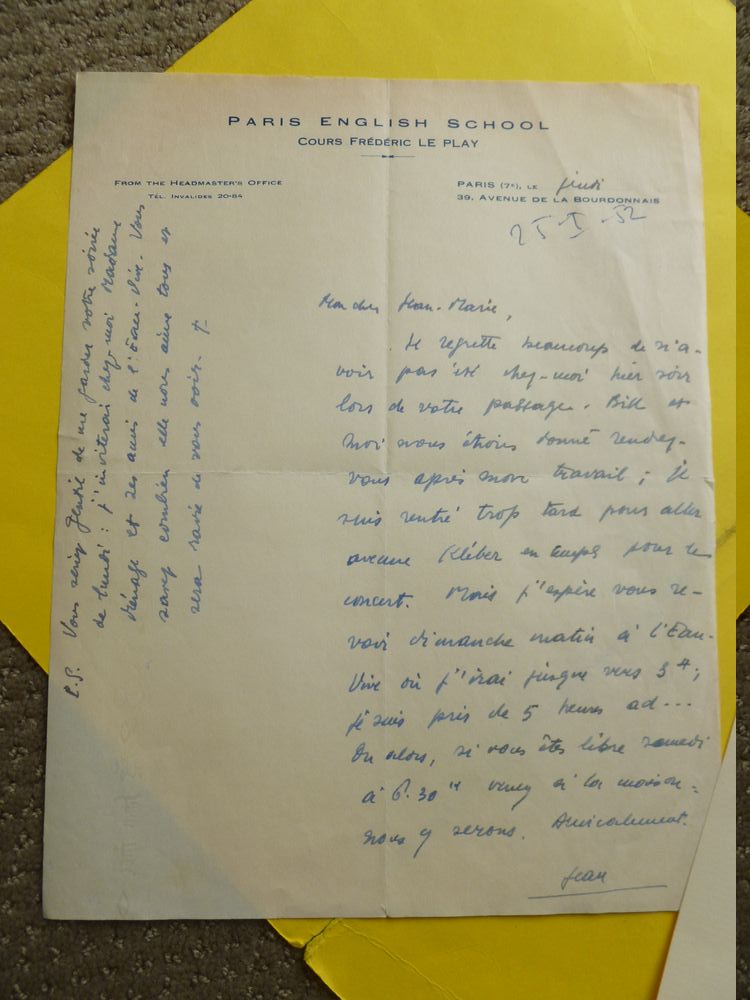 PARIS ENGLISH SCHOOL
COURS FRÉDÉRIC LE PLAY
FROM THE HEADMASTER'S OFFICE
TÉL. INVALIDES 20-84
PARIS (7e), LE jeudi
39, AVENUE DE LA BOURDONNAIS
25-I-52
Mon cher Jean-Marie,
Je regrette beaucoup de n'a-
voir pas été chez-moi hier soir
lors de votre passage. Bill et
moi nous étions donné rendez-
vous après mon travail ; je
suis rentré trop tard pour aller
avenue Kléber en temps pour le
concert. Mais j'espère vous re-
voir dimanche matin à l'Eau-
Vive où j'irai jusque vers 3 H ;
je suis pris de 5 heures ad...
Ou alors, si vous êtes libre samedi
à 6.30 H venez à la maison :
nous y serons. Amicalement.
Jean
P.S. Vous seriez gentil de me garder votre soirée
de lundi : j'inviterai chez-moi Madame
et ses amis de l'Eau-Vive. Vous
savez combien elle nous aime tous et
sera ravie de vous voir. +